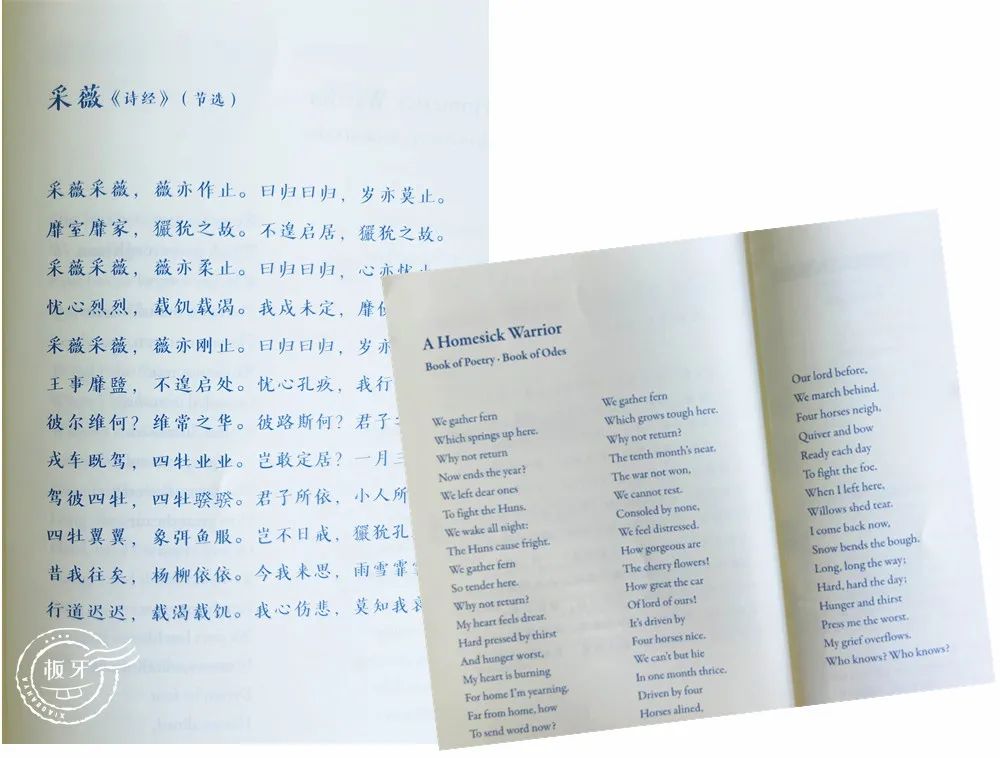 采薇《诗经》（节选）
采薇采薇，薇亦作止。曰归曰归，岁亦莫止。
靡室靡家，玁狁之故。不遑启居，玁狁之故。
采薇采薇，薇亦柔止。曰归曰归，心亦忧止
忧心烈烈，载饥载渴。我戍未定，靡
采薇采薇，薇亦刚止。曰归曰归，岁亦
王事靡盬，不遑启处。忧心孔疚，我行
彼尔维何？维常之华。彼路斯何？君子
戎车既驾，四牡业业。岂敢定居？一月三
驾彼四牡，四牡骙骙。君子所依，小人所
四牡翼翼，象弭鱼服。岂不日戒，玁狁孔
昔我往矣，杨柳依依。今我来思，雨雪霏
行道迟迟，载渴载饥。我心伤悲，莫知我
板牙
XIAOBANYA
A Homesick Warrior
Book of Poetry · Book of Odes
We gather fern
Which springs up here.
Why not return
Now ends the year?
We left dear ones
To fight the Huns.
We wake all night:
The Huns cause fright.
We gather fern
So tender here.
Why not return?
My heart feels drear.
Hard pressed by thirst
And hunger worst,
My heart is burning
For home I'm yearning.
Far from home, how
To send word now?
We gather fern
Which grows tough here.
Why not return?
The tenth month's near.
The war not won,
We cannot rest.
Consoled by none,
We feel distressed.
How gorgeous are
The cherry flowers!
How great the car
Of lord of ours!
It's driven by
Four horses nice.
We can't but hie
In one month thrice.
Driven by four
Horses alined,
Our lord before,
We march behind.
Four horses neigh,
Quiver and bow
Ready each day
To fight the foe.
When I left here,
Willows shed tear.
I come back now,
Snow bends the bough.
Long, long the way;
Hard, hard the day;
Hunger and thirst
Press me the worst.
My grief overflows.
Who knows? Who knows?